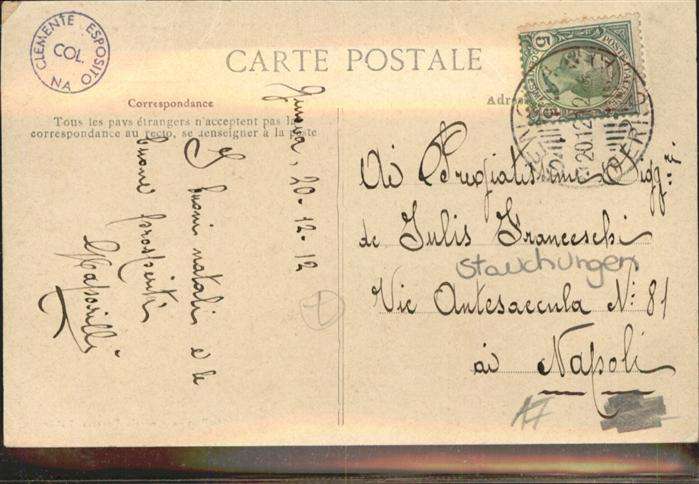 CLEMENTE ESPOSITO
COL.
NA
CARTE POSTALE
Correspondance
Tous les pays étrangers n'acceptent pas la
correspondance au recto, se renseigner à la poste
20-12-12
I buoni natali e le
buone prosperità
5
20.12.12
Ai Pregiatissimi Sigg.ri
de Julis Franceschi
Stauchungen
Via Antesaecula N: 81
ai Napoli